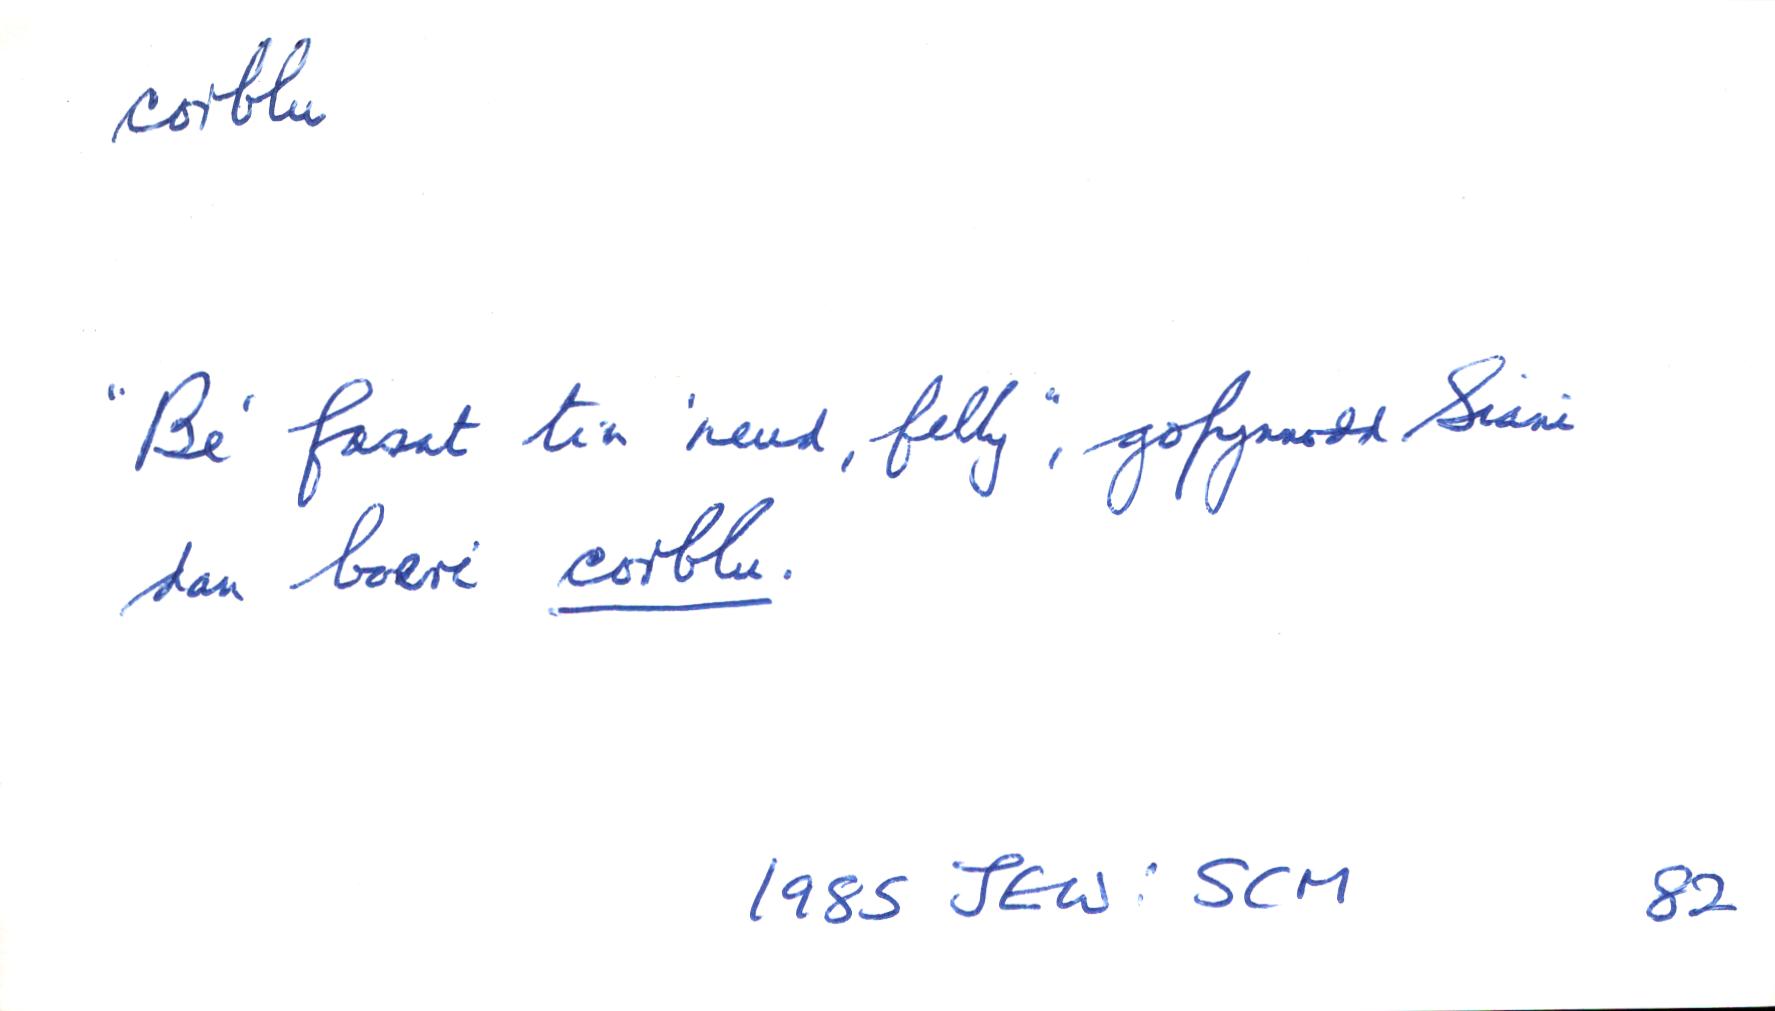 corblu
"Be' fasat ti'n 'neud, felly", gofynnodd Siani
dan boeri corblu.
1985 JEW: SCM 82